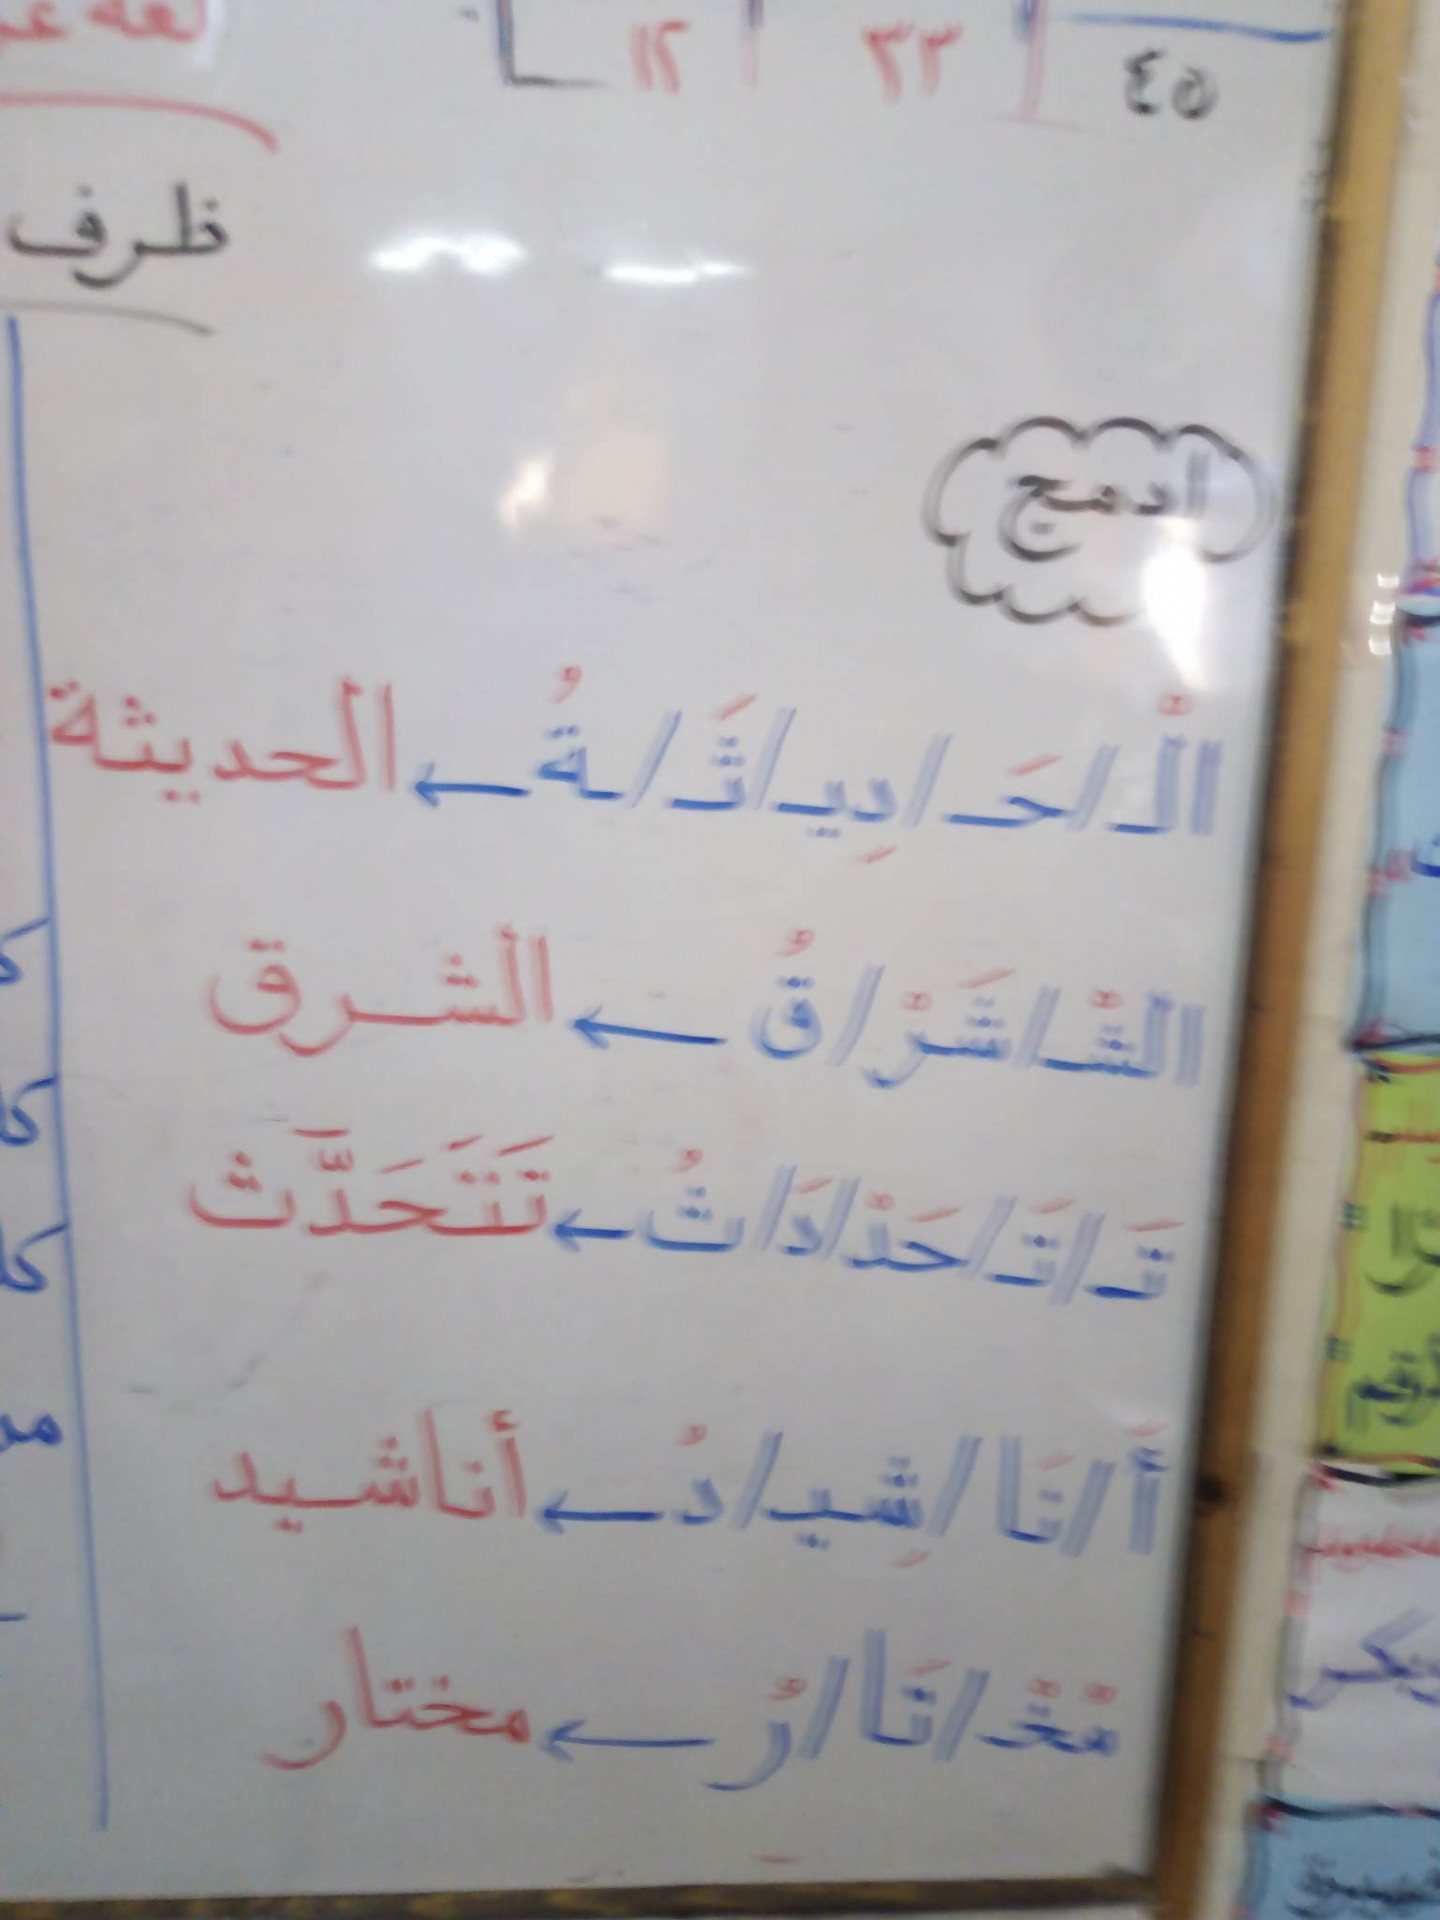 ٤٥ ٢٣ ١٢
لغة
ظرف
ادمج
الْـ/حَـ/دِيـ/ثَـ/ـةُ ← الحديثة
الشْـ/شَرْ/قُ ← الشرق
تَـ/تَـ/حَدْ/دَ/ثُ ← تَتَحَدَّث
أَ/نَا/شِيـ/دُ ← أناشيد
مُخْـ/تَا/رُ ← مختار